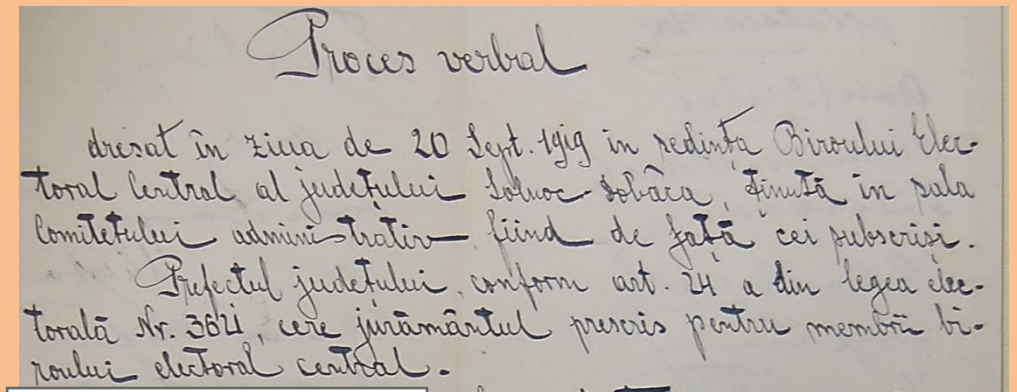 Proces verbal
dresat în ziua de 20 Sept. 1919 in sedința Biroului Elec-
toral Central al județului Solnoc-Dobâca, ținută in sala
Comitetului administrativ fiind de față cei subscriși.
Prefectul județului, conform art. 24 a din legea elec-
torală Nr. 3621, cere jurământul prescris pentru membrii bi-
roului electoral central.